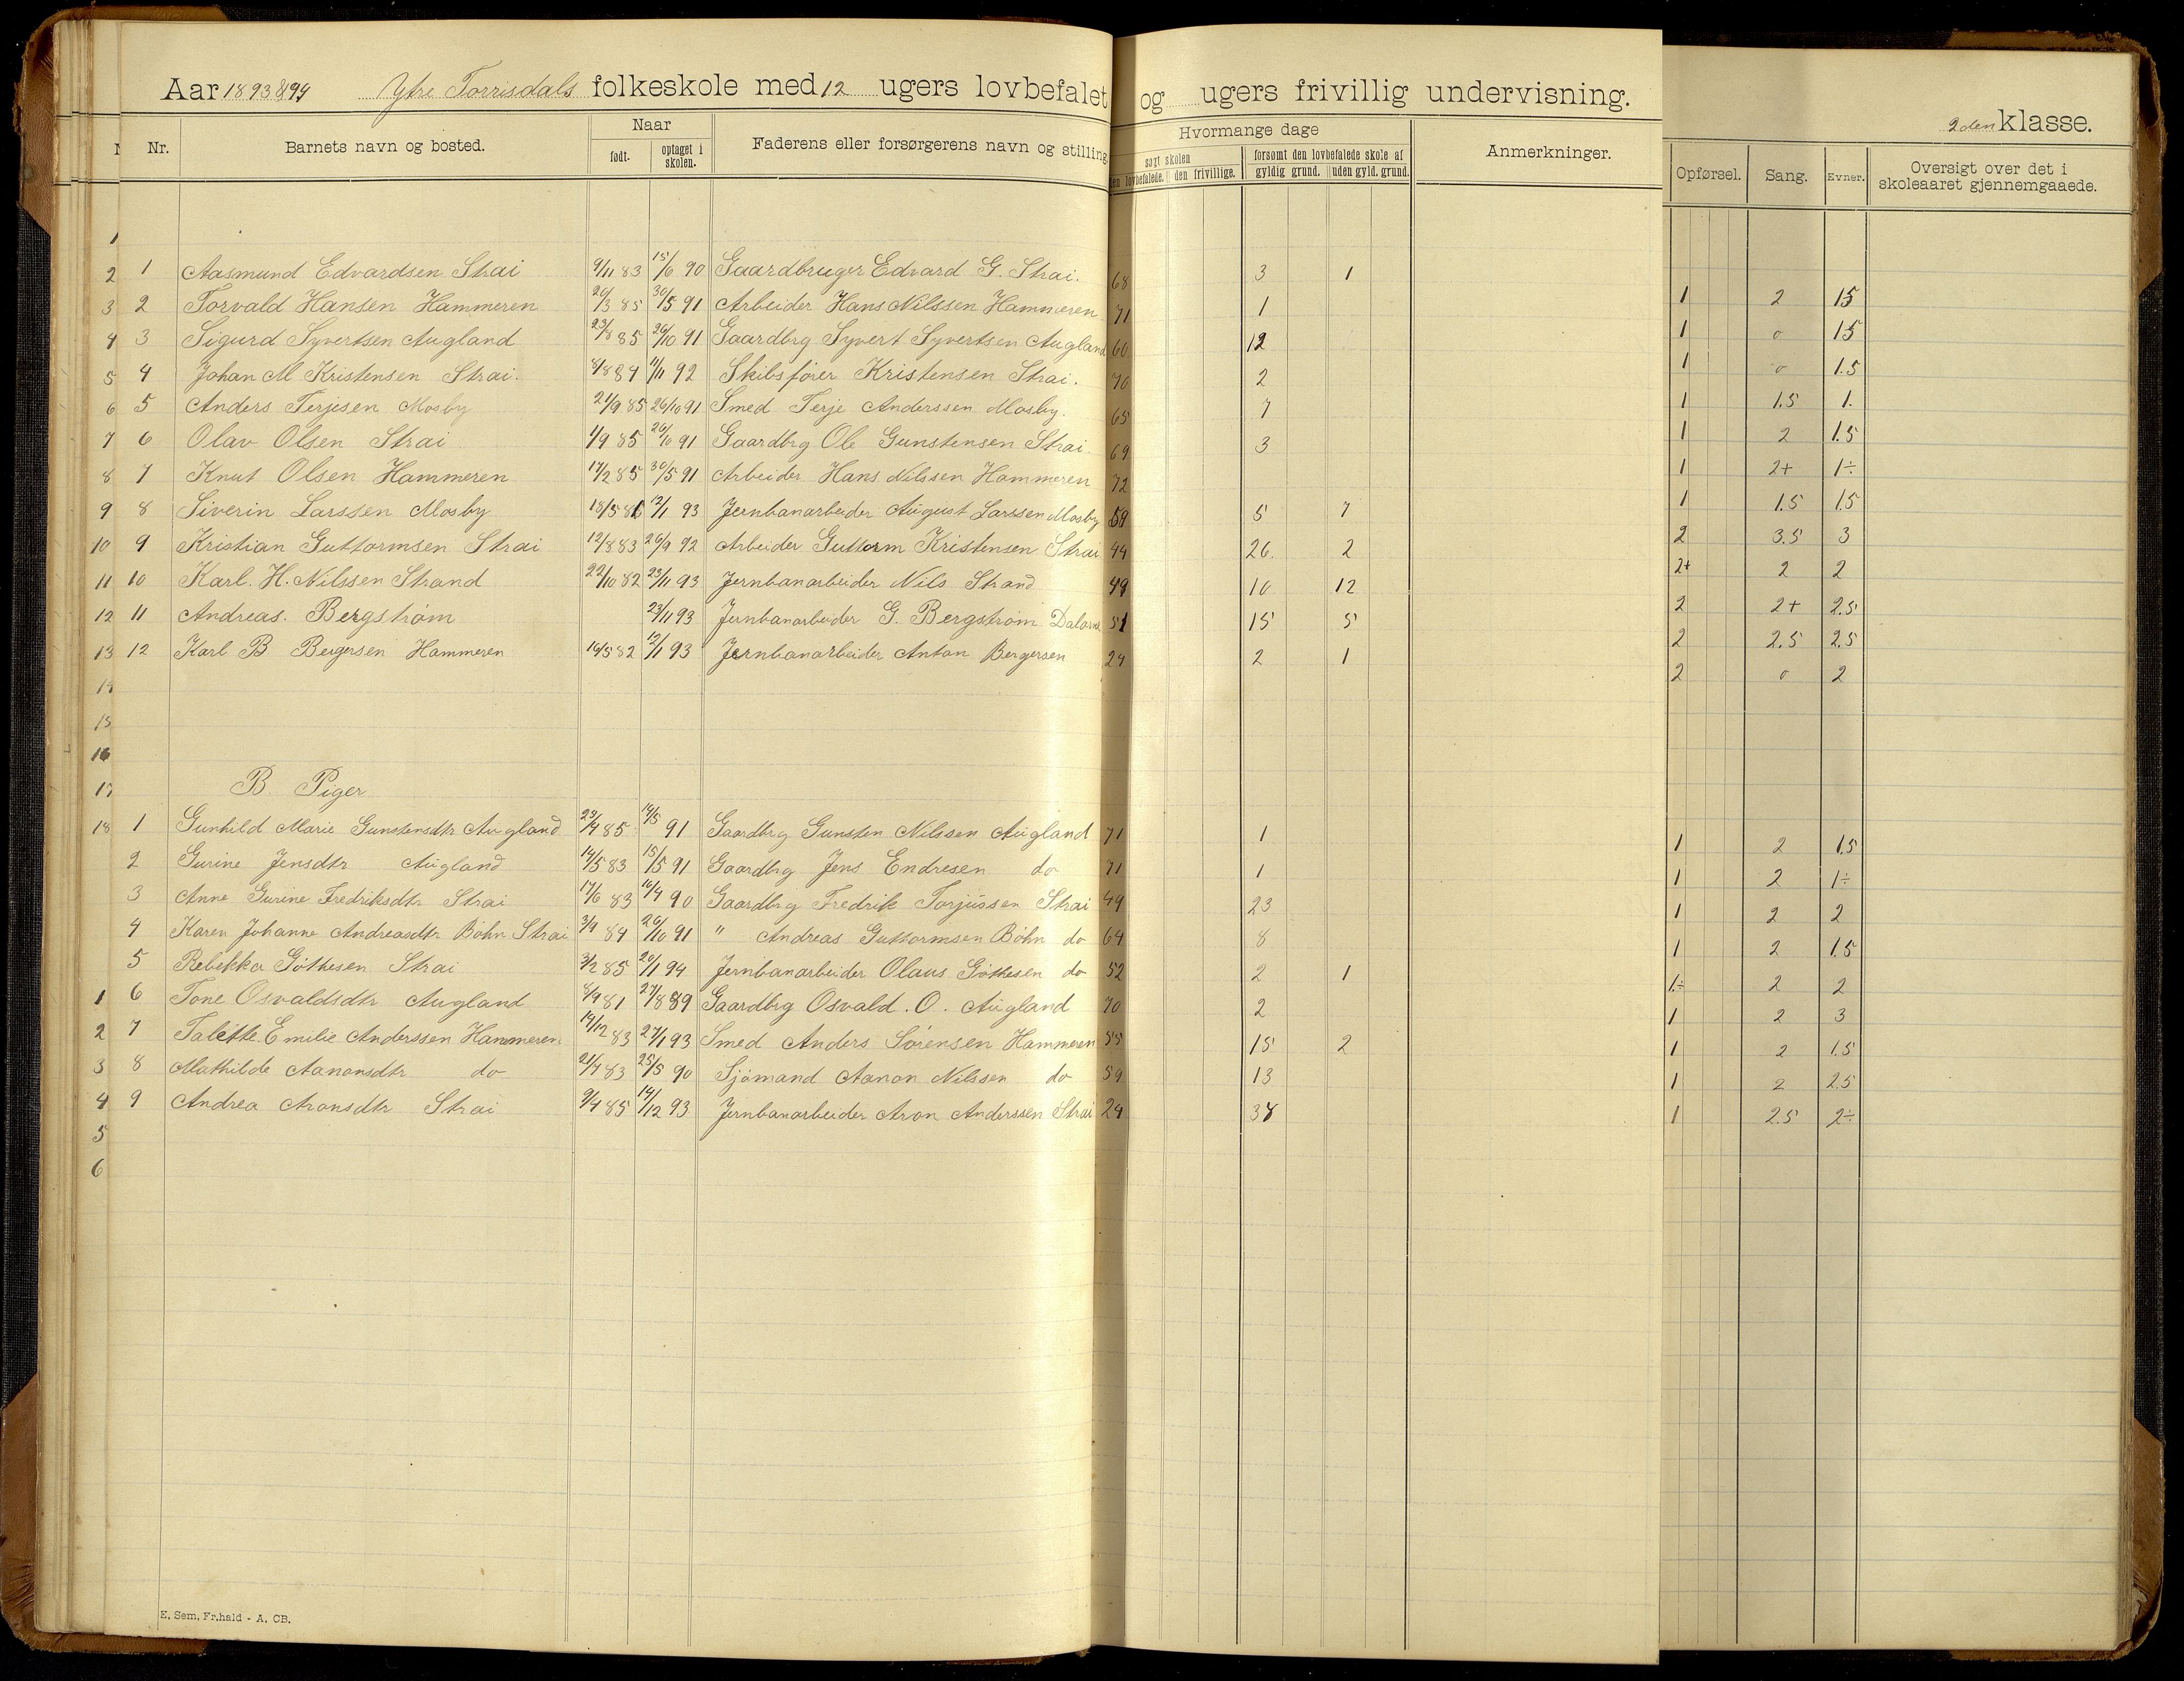 Aar 1893 & 94 Ytre Torrisdals folkeskole med 12 ugers lovbefalet og ugers frivillig undervisning.
2den klasse.
Nr. Barnets navn og bosted. Naar født. optaget i skolen. Faderens eller forsørgerens navn og stilling Hvormange dage søgt skolen den lovbefalede. den frivillige. forsømt den lovbefalede skole af gyldig grund. uden gyld. grund. Anmerkninger. Opførsel. Sang. Evner. Oversigt over det i skoleaaret gjennemgaaede.
1
2 1 Aasmund Edvardsen Strai 9/11 83 15/6 90 Gaardbruger Edvard G. Strai. 68 3 1 1 2 15
3 2 Torvald Hansen Hammeren 20/3 85 30/5 91 Arbeider Hans Nilssen Hammeren 71 1 1 o 15
4 3 Sigurd Syvertsen Augland 23/8 85 26/10 91 Gaardbrg Syvert Syvertsen Augland 60 12 1 o 1.5
5 4 Johan M Kristensen Strai. 8/8 84 11/11 92 Skibsfører Kristensen Strai. 70 2 1 1.5 1.
6 5 Anders Terjesen Mosby 21/9 85 26/10 91 Smed Terje Anderssen Mosby. 65 7 1 2 1.5
7 6 Olav Olsen Strai 1/9 85 26/10 91 Gaardbrg Ole Gunstensen Strai 69 3 1 2+ 1÷
8 7 Knut Olsen Hammeren 17/2 85 30/5 91 Arbeider Hans Nilssen Hammeren 72 1 1.5 1.5
9 8 Siverin Larssen Mosby 18/5 81 12/1 93 Jernbanarbeider August Larssen Mosby 59 5 7 2 3.5 3
10 9 Kristian Guttormsen Strai 12/8 83 26/9 92 Arbeider Guttorm Kristensen Strai 44 26. 2 2+ 2 2
11 10 Karl. H. Nilssen Strand 22/10 82 23/11 93 Jernbanarbeider Nils Strand 49 10 12 2 2+ 2.5
12 11 Andreas. Bergstrøm 23/11 93 Jernbanarbeider G. Bergstrøm Dalarne 51 15 5 2 2.5 2.5
13 12 Karl B Bergersen Hammeren 16/5 82 12/1 93 Jernbanarbeider Anton Bergersen 24 2 1 2 o 2
14
15
16
17 B. Piger
18 1 Gunhild Marie Gunstensdtr Augland 23/4 85 14/5 91 Gaardbrg Gunsten Nilssen Augland 71 1 1 2 1.5
2 Gurine Jensdtr Augland 14/5 83 15/5 91 Gaardbrg Jens Endresen do 71 1 1 2 1÷
3 Anne Gurine Fredriksdtr Strai 17/6 83 16/4 90 Gaardbrg Fredrik Torjussen Strai 49 23 1 2 2
4 Karen Johanne Andreasdtr Bøhn Strai 3/4 84 26/10 91 " Andreas Guttormsen Bøhn do 64 8 1 2 1.5
5 Rebekka Gøthesen Strai 3/2 85 20/1 94 Jernbanarbeider Olaus Gøthesen do 52 2 1 1÷ 2 2
1 6 Tone Osvaldsdtr Augland 8/9 81 27/8 89 Gaardbrg Osvald. O. Augland 70 2 1 2 3
2 7 Talette Emilie Anderssen Hammeren 14/12 83 27/1 93 Smed Anders Sørensen Hammeren 55 15 2 1 2 1.5
3 8 Mathilde Aanonsdtr do 21/4 83 25/5 90 Sjømand Aanon Nilssen do 59 13 1 2 2.5
4 9 Andrea Aronsdtr Strai 9/4 85 14/12 93 Jernbanarbeider Aron Anderssen Strai 24 38 1 2.5 2÷
5
6
E. Sem, Fr.hald - A. CB.